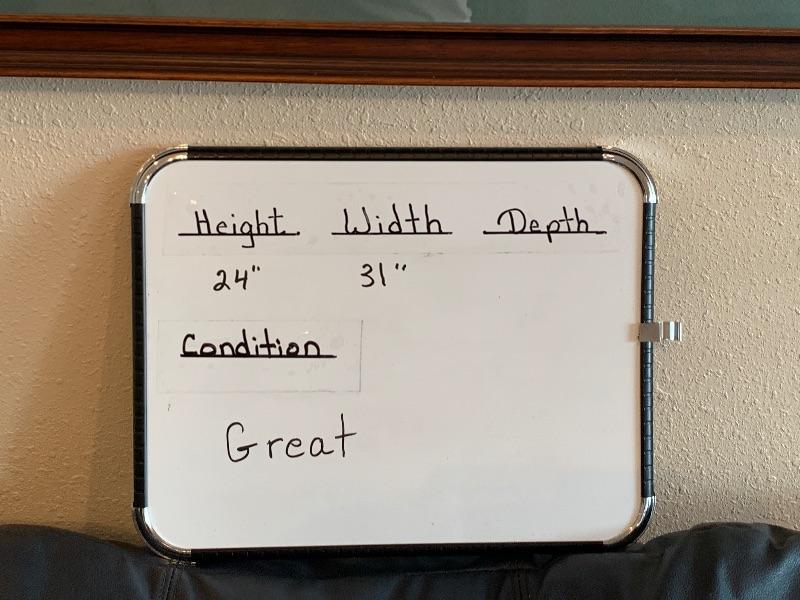 Height Width Depth
24" 31"
Condition
Great